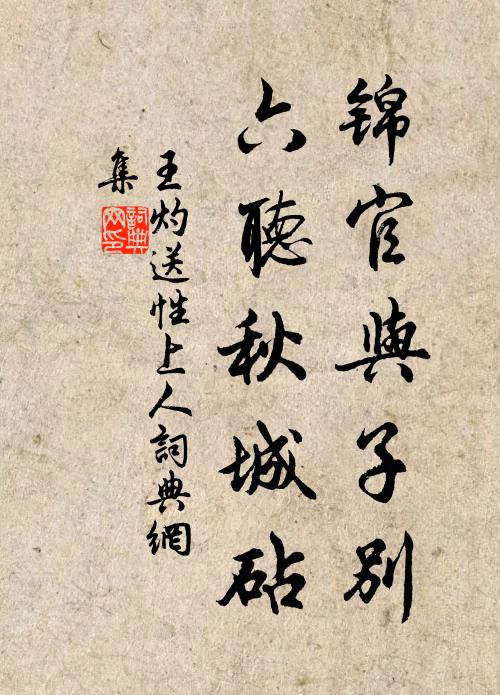 錦官與子別
六聽秋城砧
王灼送性上人詞典網
集
詞典
网印